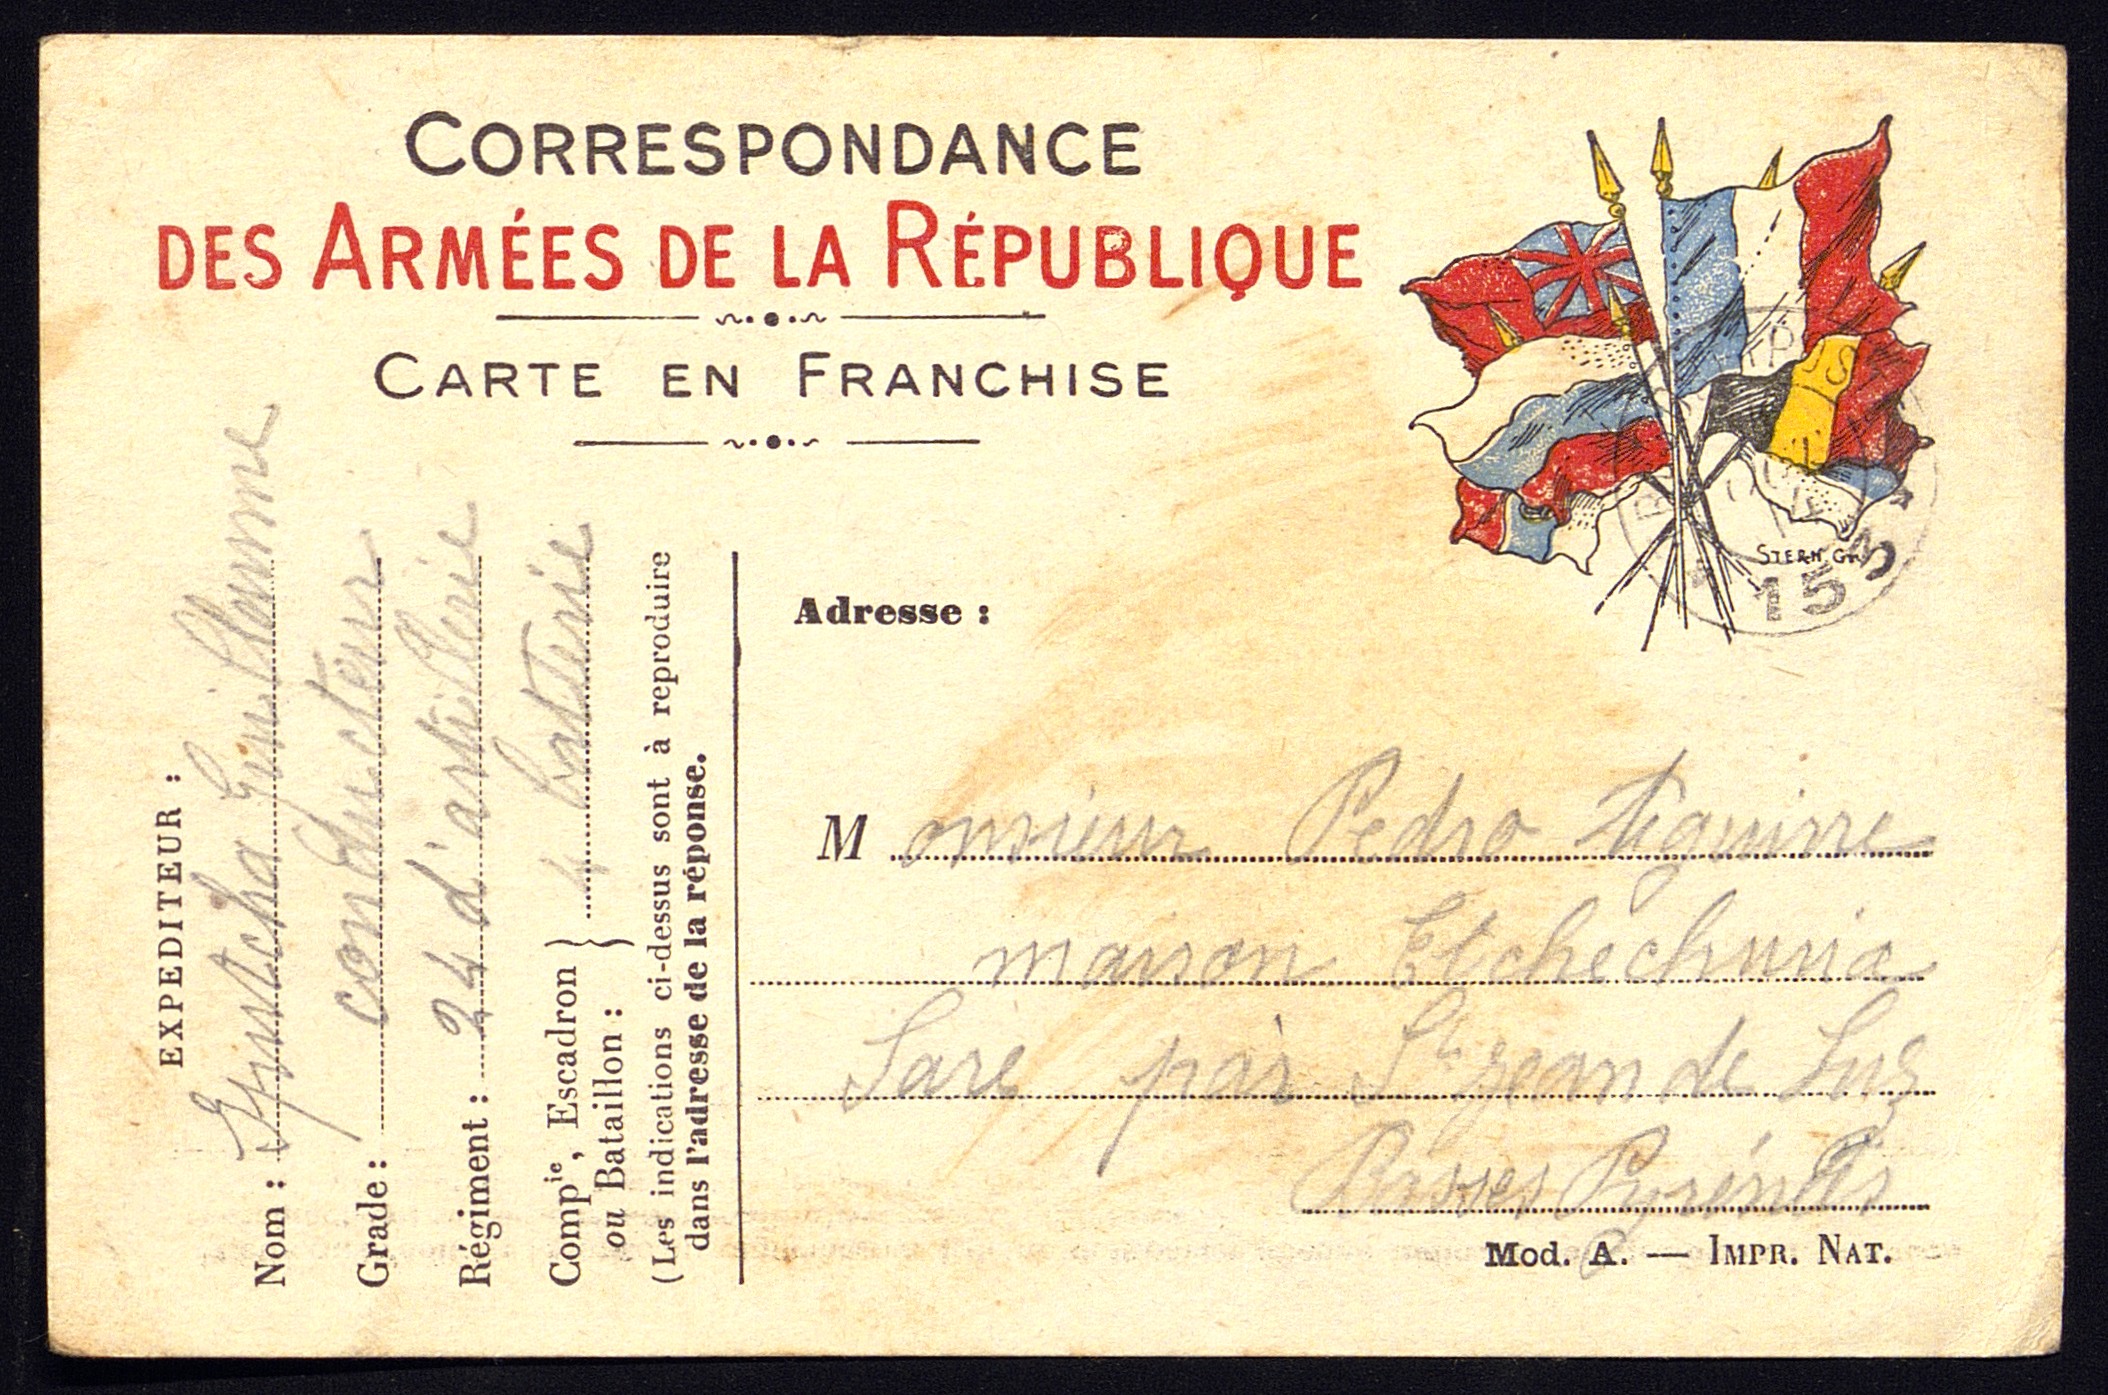 CORRESPONDANCE
DES ARMÉES DE LA RÉPUBLIQUE
CARTE EN FRANCHISE
EXPEDITEUR :
Nom : Guillaume
Grade : conducteur
Régiment : 24 d'artillerie
Comp<sup>ie</sup>, Escadron
ou Bataillon : } 4 batterie
(Les indications ci-dessus sont à reproduire
dans l'adresse de la réponse.
STERN Gr.
15
Adresse :
Monsieur Pedro
maison Etchechuria
Sare par St Jean de Luz
Basses Pyrénées
Mod. A. — IMPR. NAT.